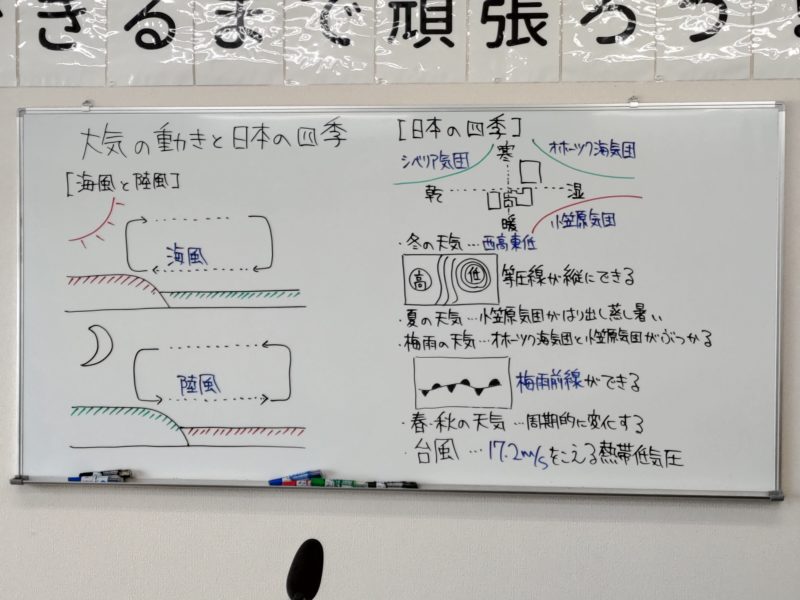 きるまで頑張ろう!
大気の動きと日本の四季
[海風と陸風]
海風
陸風
[日本の四季]
シベリア気団
寒
オホーツク海気団
乾
湿
暖
小笠原気団
・冬の天気…西高東低
高
低
等圧線が縦にできる
・夏の天気…小笠原気団がはり出し蒸し暑い
・梅雨の天気…オホーツク海気団と小笠原気団がぶつかる
梅雨前線ができる
・春・秋の天気…周期的に変化する
・台風…17.2m/sをこえる熱帯低気圧